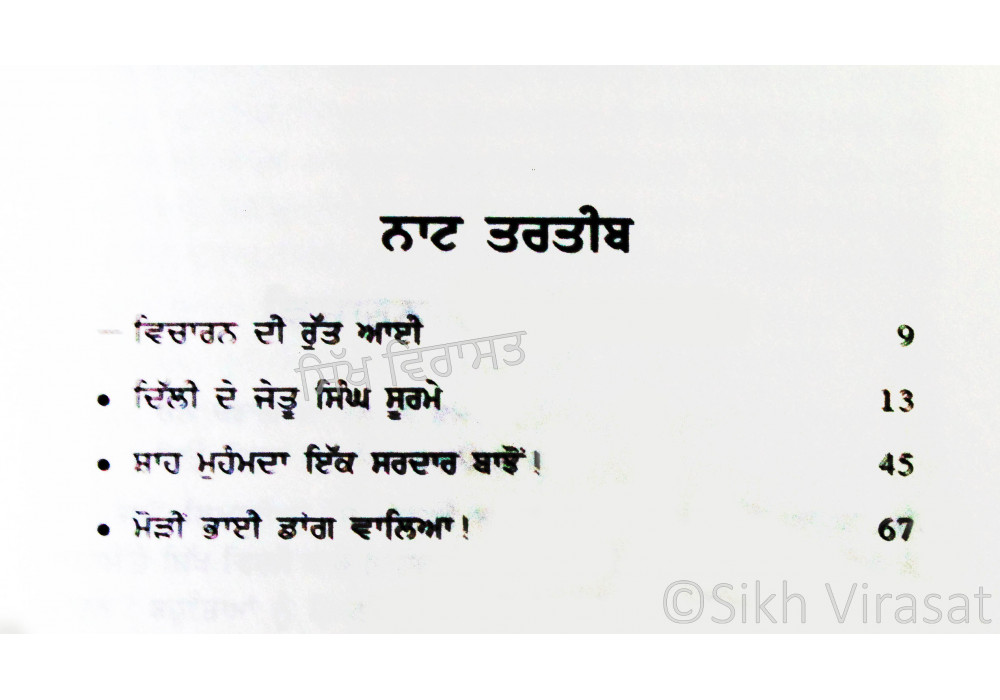 ਨਾਟ ਤਰਤੀਬ
– ਵਿਚਾਰਨ ਦੀ ਰੁੱਤ ਆਈ 9
ਸਿੱਖ ਵਿਰਾਸਤ
• ਦਿੱਲੀ ਦੇ ਜੇਤੂ ਸਿੰਘ ਸੂਰਮੇ 13
• ਸ਼ਾਹ ਮੁਹੰਮਦਾ ਇੱਕ ਸਰਦਾਰ ਬਾਝੋਂ! 45
• ਮੋੜੀਂ ਭਾਈ ਡਾਂਗ ਵਾਲਿਆ! 67
©Sikh Virasat